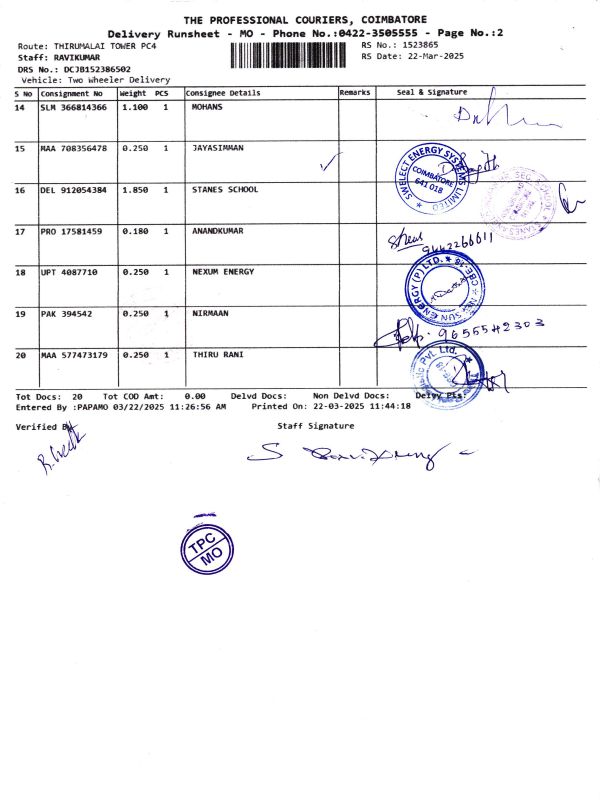 THE PROFESSIONAL COURIERS, COIMBATORE
Delivery Runsheet - MO - Phone No.:0422-3505555 - Page No.:2
Route: THIRUMALAI TOWER PC4 RS No.: 1523865
Staff: RAVIKUMAR RS Date: 22-Mar-2025
DRS No.: DCJB152386502
Vehicle: Two Wheeler Delivery
S No Consignment No Weight PCS Consignee Details Remarks Seal & Signature
14 SLM 366814366 1.100 1 MOHANS
15 MAA 708356478 0.250 1 JAYASIMMAN
SWELECT ENERGY SYSTEMS LIMITED
COIMBATORE
641 018
16 DEL 912054384 1.850 1 STANES SCHOOL
17 PRO 17581459 0.180 1 ANANDKUMAR
9442266611
18 UPT 4087710 0.250 1 NEXUM ENERGY
SUN ENERGY (P) LTD. CBE-18
19 PAK 394542 0.250 1 NIRMAAN
9655542303
20 MAA 577473179 0.250 1 THIRU RANI
Pvt. Ltd.
Tot Docs: 20 Tot COD Amt: 0.00 Delvd Docs: Non Delvd Docs: Delvy Pls:
Entered By :PAPAMO 03/22/2025 11:26:56 AM Printed On: 22-03-2025 11:44:18
Verified By Staff Signature
TPC
MO